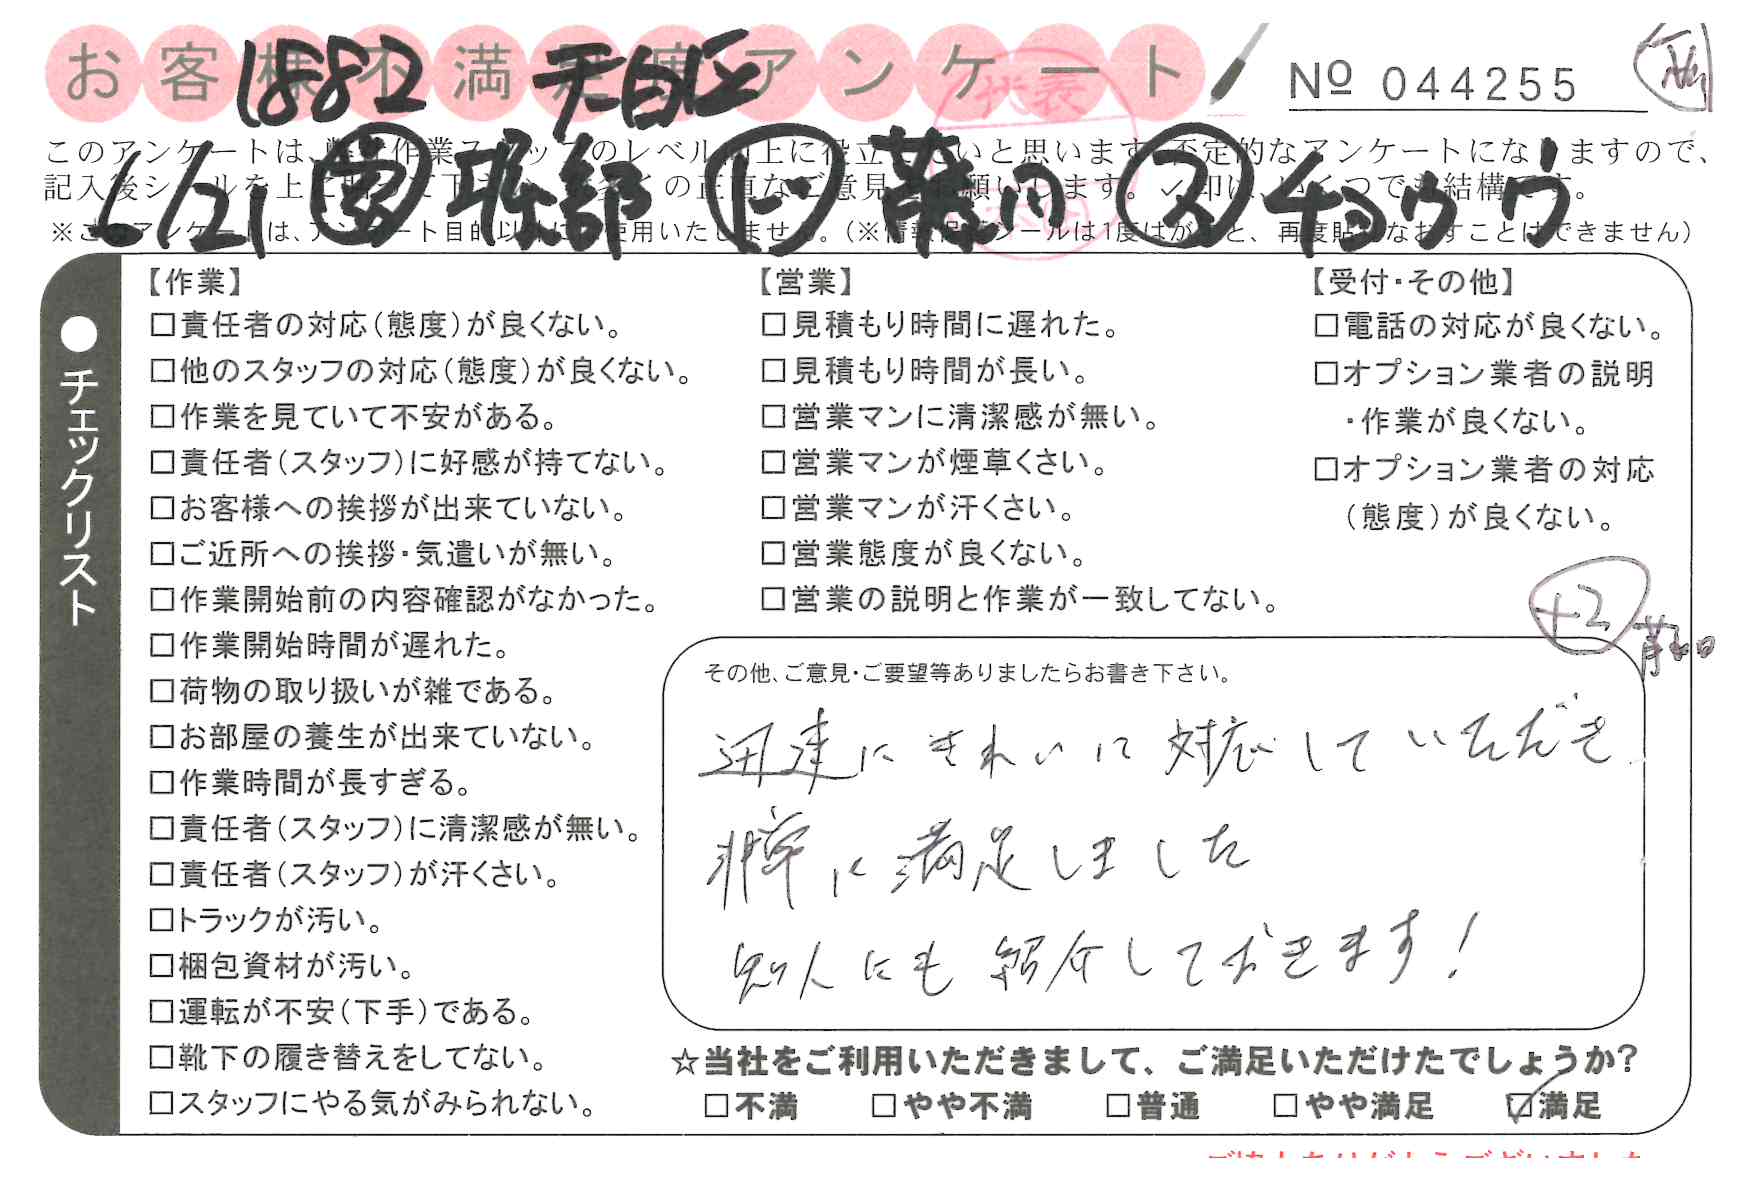 お客様不満足度アンケート
1882
Nº 044255
このアンケートは、弊社作業スタッフのレベル向上に役立てたいと思います。否定的なアンケートになりますので、
記入後シールを上に貼って下さい。多くの正直なご意見をお願いします。✓印は、いくつでも結構です。
6/21 営 ド ス チョウ
※このアンケートは、アンケート目的以外には使用いたしません。(※情報保護シールは1度はがすと、再度貼りなおすことはできません)
代表
●チェックリスト
【作業】
□責任者の対応(態度)が良くない。
□他のスタッフの対応(態度)が良くない。
□作業を見ていて不安がある。
□責任者(スタッフ)に好感が持てない。
□お客様への挨拶が出来ていない。
□ご近所への挨拶・気遣いが無い。
□作業開始前の内容確認がなかった。
□作業開始時間が遅れた。
□荷物の取り扱いが雑である。
□お部屋の養生が出来ていない。
□作業時間が長すぎる。
□責任者(スタッフ)に清潔感が無い。
□責任者(スタッフ)が汗くさい。
□トラックが汚い。
□梱包資材が汚い。
□運転が不安(下手)である。
□靴下の履き替えをしてない。
□スタッフにやる気がみられない。
【営業】
□見積もり時間に遅れた。
□見積もり時間が長い。
□営業マンに清潔感が無い。
□営業マンが煙草くさい。
□営業マンが汗くさい。
□営業態度が良くない。
□営業の説明と作業が一致してない。
【受付・その他】
□電話の対応が良くない。
□オプション業者の説明
・作業が良くない。
□オプション業者の対応
(態度)が良くない。
+2
その他、ご意見・ご要望等ありましたらお書き下さい。
迅速にきれいに対応していただき
非常に満足しました
知人にも紹介しておきます!
☆当社をご利用いただきまして、ご満足いただけたでしょうか?
□不満 □やや不満 □普通 □やや満足 ☑満足
ご協力ありがとうございました